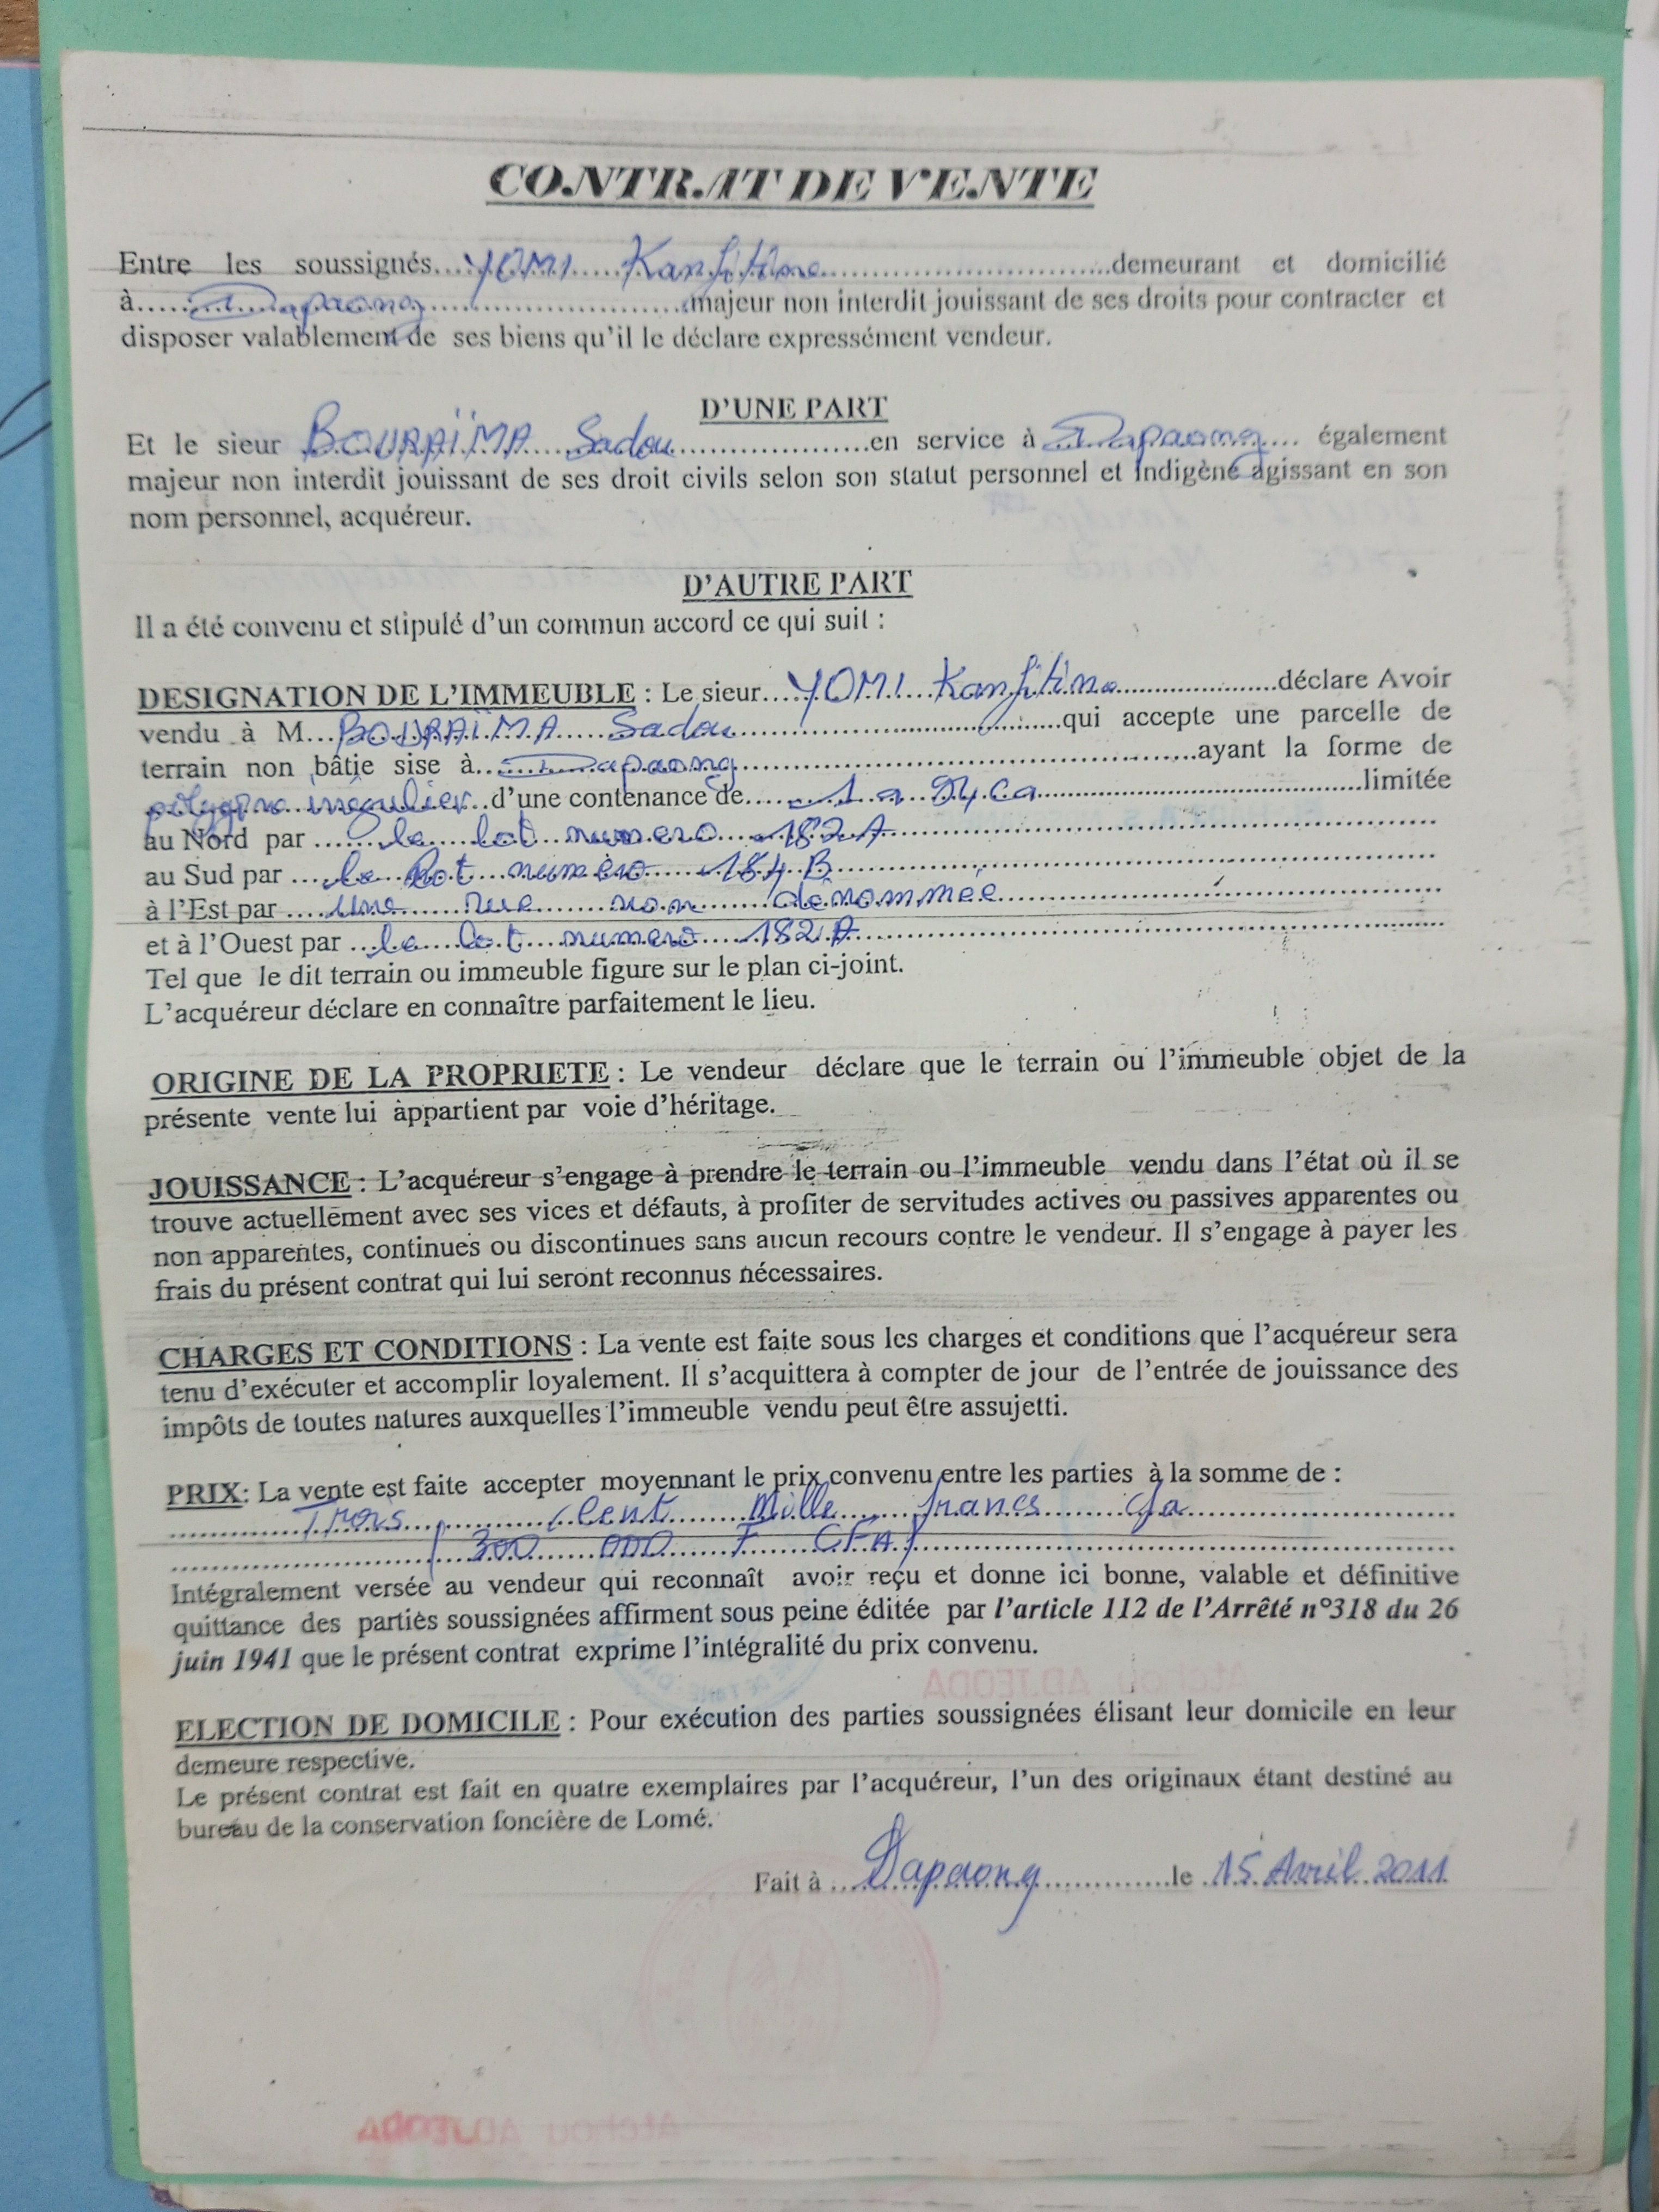 CONTRAT DE VENTE
Entre les soussignés....YOMI.....Kanfitine...............................demeurant et domicilié
à.....Dapaong.........................majeur non interdit jouissant de ses droits pour contracter et
disposer valablement de ses biens qu'il le déclare expressément vendeur.
D'UNE PART
Et le sieur BOURAÏMA.....Sadou....................en service à Dapaong.... également
majeur non interdit jouissant de ses droit civils selon son statut personnel et Indigène agissant en son
nom personnel, acquéreur.
D'AUTRE PART
Il a été convenu et stipulé d'un commun accord ce qui suit :
DESIGNATION DE L'IMMEUBLE : Le sieur....YOMI...Kanfitine...................déclare Avoir
vendu à M...BOURAÏMA.....Sadou.................................qui accepte une parcelle de
terrain non bâtie sise à.......Dapaong..................................................ayant la forme de
polygone irrégulier..d'une contenance de.....1 a 94 ca....................................limitée
au Nord par ......le lot numero....182A..........................................................
au Sud par ....le lot numéro.....184 B..........................................................
à l'Est par ....une.......rue.......non dénommée..................................................
et à l'Ouest par ...le...lot....numero....182 A..........................................................
Tel que le dit terrain ou immeuble figure sur le plan ci-joint.
L'acquéreur déclare en connaître parfaitement le lieu.
ORIGINE DE LA PROPRIETE : Le vendeur déclare que le terrain ou l'immeuble objet de la
présente vente lui appartient par voie d'héritage.
JOUISSANCE : L'acquéreur s'engage à prendre le terrain ou l'immeuble vendu dans l'état où il se
trouve actuellement avec ses vices et défauts, à profiter de servitudes actives ou passives apparentes ou
non apparentes, continues ou discontinues sans aucun recours contre le vendeur. Il s'engage à payer les
frais du présent contrat qui lui seront reconnus nécessaires.
CHARGES ET CONDITIONS : La vente est faite sous les charges et conditions que l'acquéreur sera
tenu d'exécuter et accomplir loyalement. Il s'acquittera à compter de jour de l'entrée de jouissance des
impôts de toutes natures auxquelles l'immeuble vendu peut être assujetti.
PRIX: La vente est faite accepter moyennant le prix convenu entre les parties à la somme de :
............Trois..............Cent........Mille.......francs.......cfa..............................
..........................(300......000.....F......CFA)..................................................
Intégralement versée au vendeur qui reconnaît avoir reçu et donne ici bonne, valable et définitive
quittance des parties soussignées affirment sous peine éditée par l'article 112 de l'Arrêté n°318 du 26
juin 1941 que le présent contrat exprime l'intégralité du prix convenu.
Atchou ADJEODA
ELECTION DE DOMICILE : Pour exécution des parties soussignées élisant leur domicile en leur
demeure respective.
Le présent contrat est fait en quatre exemplaires par l'acquéreur, l'un des originaux étant destiné au
bureau de la conservation foncière de Lomé.
Fait à ...Dapaong.............le .15 Avril 2011
Atchou ADJEODA